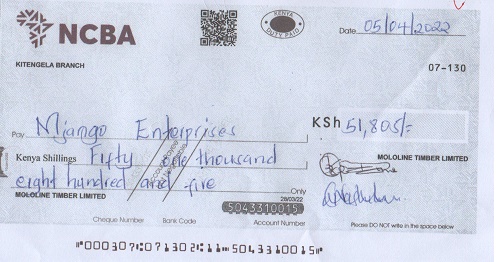 NCBA
KENYA
DUTY PAID
Date 05/04/2022
KITENGELA BRANCH
07-130
Pay Njango Enterprises
KSh 51,805/=
Kenya Shillings Fifty one thousand
eight hundred and five Only
MOLOLINE TIMBER LIMITED
MOLOLINE TIMBER LIMITED
28/03/22
5043310015
Cheque Number Bank Code Account Number
Please DO NOT write in the space below
"000307:07130 2:11 5043310015"